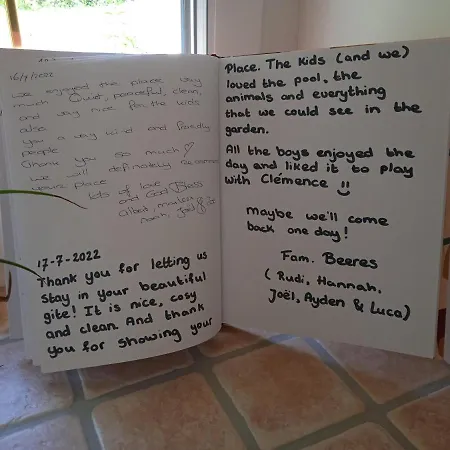 16/7/2022
we enjoyed the place very
much Quiet, peaceful, clean,
and very nice for the kids
also
you a very kind and friendly
people
Thank you so much
we will definitely recommend
your place
lots of love
and God Bless
17-7-2022
Thank you for letting us
stay in your beautiful
gite! It is nice, cosy
and clean. And thank
you for showing your
Place. The Kids (and we)
loved the pool, the
animals and everything
that we could see in the
garden.
All the boys enjoyed the
day and liked it to play
with Clémence
Maybe we'll come
back one day!
Fam. Beeres
(Rudi, Hannah,
Joël, Ayden & Luca)